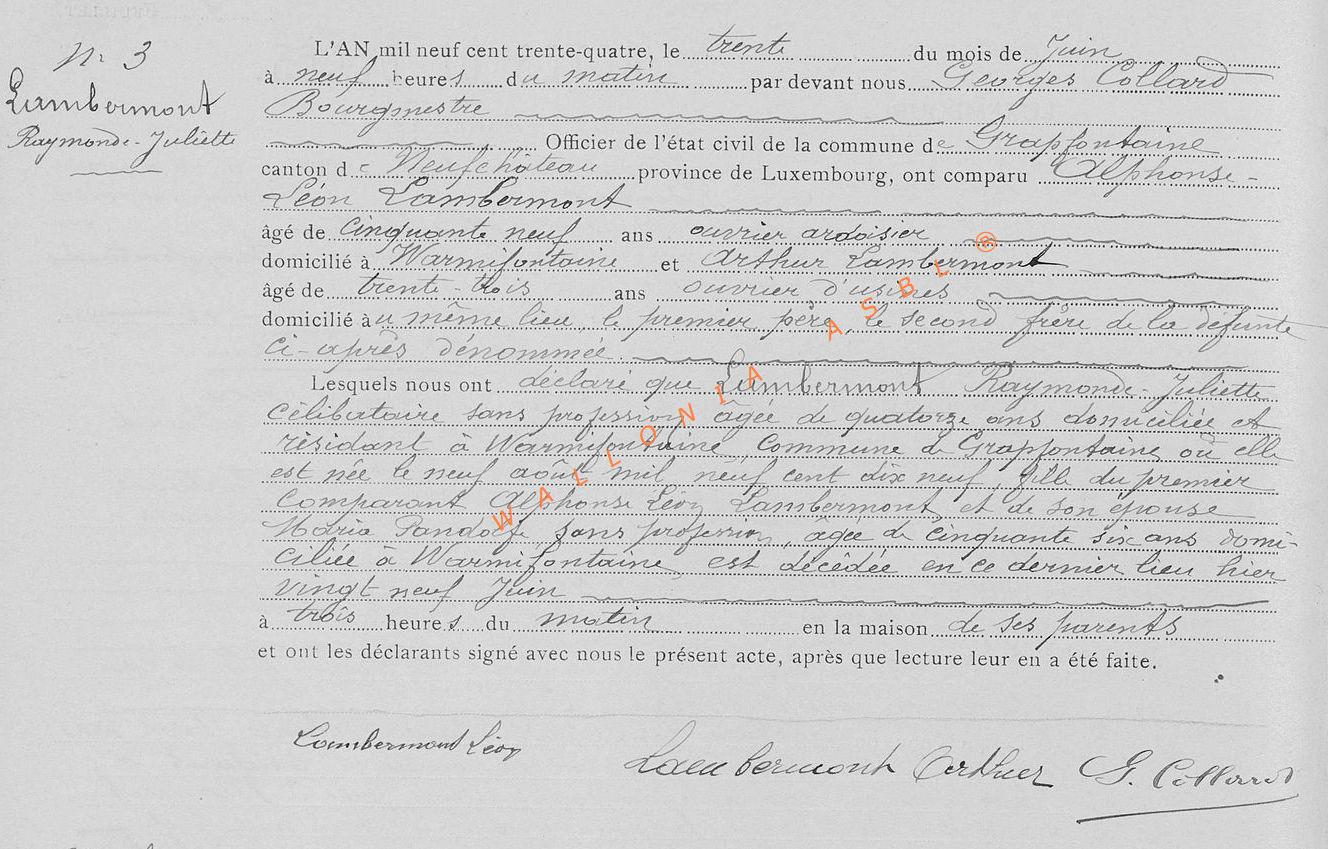 N° 3
Lambermont
Raymonde-Juliette
L'AN mil neuf cent trente-quatre, le trente du mois de Juin
à neuf heures du matin par devant nous Georges Collard
Bourgmestre
Officier de l'état civil de la commune de Grapfontaine
canton de Neufchâteau province de Luxembourg, ont comparu Alphonse-
Léon Lambermont
âgé de cinquante neuf ans ouvrier ardoisier
domicilié à Warmifontaine et Arthur Lambermont
âgé de trente-trois ans ouvrier d'usines
domicilié au même lieu, le premier père, le second frère de la défunte
ci-après dénommée
Lesquels nous ont déclaré que Lambermont Raymonde-Juliette
célibataire sans profession, âgée de quatorze ans domiciliée et
résidant à Warmifontaine, Commune de Grapfontaine où elle
est née le neuf août mil neuf cent dix neuf, fille du premier
comparant Alphonse Léon Lambermont, et de son épouse
Maria Pandolfe, sans profession, âgée de cinquante six ans domi-
ciliée à Warmifontaine, est décédée en ce dernier lieu hier
vingt neuf Juin
à trois heures du matin en la maison de ses parents
et ont les déclarants signé avec nous le présent acte, après que lecture leur en a été faite.
Lambermont Léon
Lambermont Arthur G. Collard
WALLONIA ASBL ®